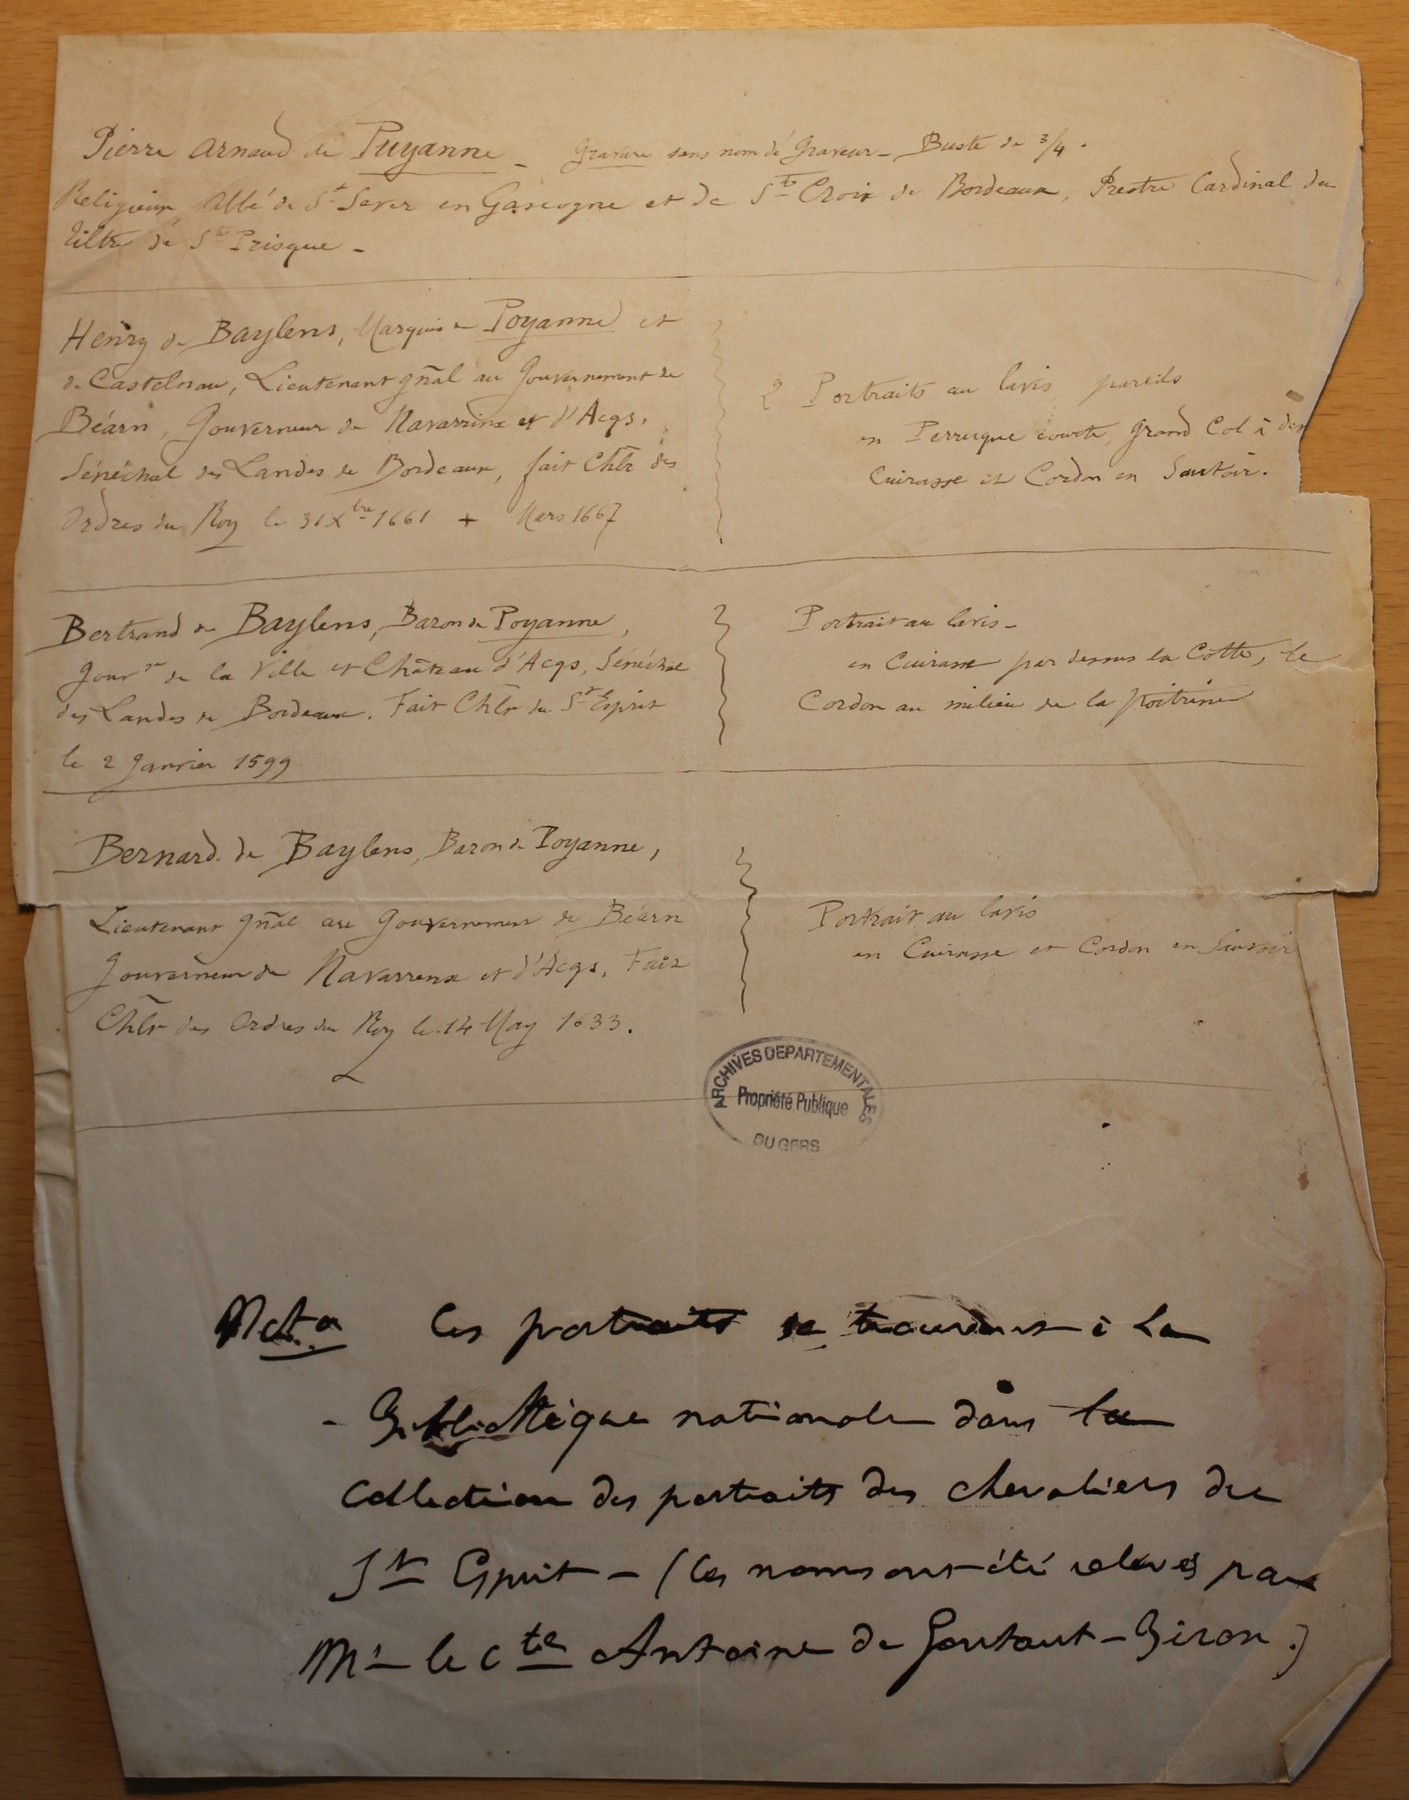 Pierre Arnaud de Puyanne - Gravure sans nom de Graveur - Buste de 3/4.
Religieux, Abbé de St Sever en Gascogne et de Ste Croix de Bordeaux, Prestre Cardinal du
titre de Ste Prisque -
Henry de Baylens, Marquis de Poyanne et
de Castelnau, Lieutenant gñal au Gouvernement de
Béarn, Gouverneur de Navarrinx et d'Acqs,
Sénéchal des Landes de Bordeaux, fait Chlr des
Ordres du Roy le 31 Xbre 1661 + Mars 1667
2 Portraits au lavis pareils
en Perruque courte, grand Col à
Cuirasse et Cordon en Sautoir.
Bertrand de Baylens, Baron de Poyanne,
Gouvr de la Ville et Château d'Acqs, Sénéchal
des Landes de Bordeaux. Fait Chlr du St Esprit
le 2 Janvier 1599
Portrait au lavis -
en Cuirasse par dessus la Cotte, le
Cordon au milieu de la poitrine
Bernard de Baylens, Baron de Poyanne,
Lieutenant gñal au Gouvernement de Béarn
Gouverneur de Navarrenx et d'Acqs. Fait
Chlr des Ordres du Roy le 14 May 1633.
Portrait au lavis
en Cuirasse et Cordon en Sautoir
ARCHIVES DEPARTEMENTALES
Propriété Publique
DU GERS
Nota Ces portraits se trouvent à la
- Bibliothèque nationale dans la
collection des portraits des chevaliers du
St Esprit - (Ces noms ont été relevés par
Mr le Cte Antoine de Gontaut-Biron.)